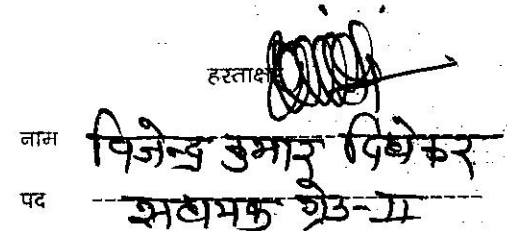 हस्ताक्षर
नाम विजेन्द्र कुमार दिघेकर
पद सहायक ग्रेड-II